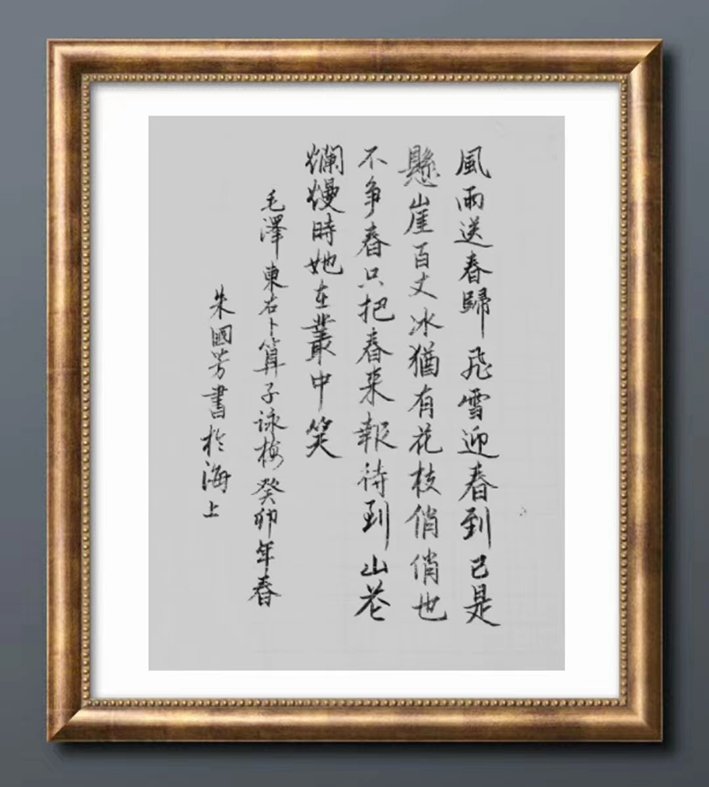 風雨送春歸飛雪迎春到已是
懸崖百丈冰猶有花枝俏俏也
不争春只把春来報待到山花
爛熳時她在叢中笑
毛澤東右卜算子詠梅癸卯年春
朱國芳書於海上